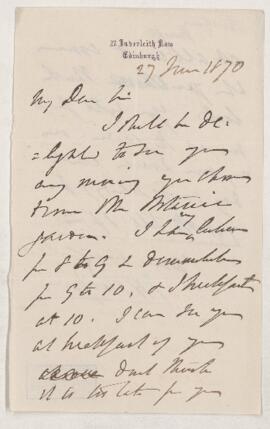 27 Inverleith Row
Edinburgh
27 June 1870
My Dear Sir
I shall be de-
=lighted to see you
any morning you choose
from the Botanic
garden. I have my Lecture
fr 8 to 9 & demonstration
fr 9 to 10. & I breakfast
at 10. I can see you
at breakfast if you
dont think
it is too late for you